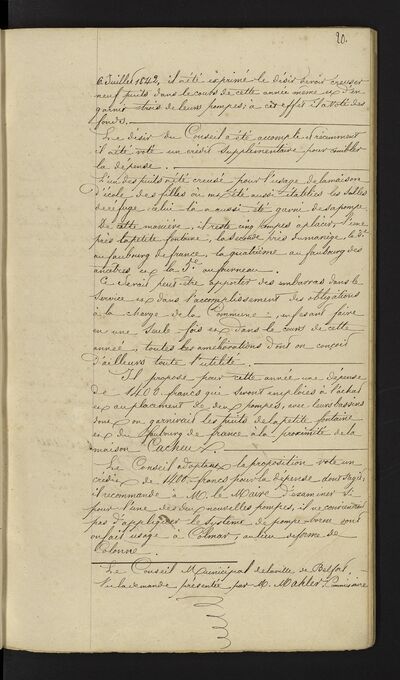 20.
6 Juillet 1842, il a été exprimé le désir de voir creuser
neuf puits dans le cours de cette année même et d'en
garnir trois de leurs pompes; à cet effet il a voté des
fonds.
Le désir du Conseil a été accompli et récemment
il a été voté un crédit supplémentaire pour combler
la dépense.
L'un des puits a été creusé pour l'usage de la maison
d'école des filles où ont été aussi établies les salles
de réfuge celui là a aussi été garni de sa pompe.
De cette manière, il reste cinq pompes à placer, l'une
près la petite fontaine, la seconde près du manège, la 3e
au faubourg de france, la quatrième au faubourg des
ancêtres et la 5e au fourneau.
Ce serait peut être apporter des embarras dans le
Service et dans l'accomplissement des obligations
à la charge de la Commune, en faisant faire
en une seule fois et dans le cours de cette
année, toutes les améliorations dont on conçoit
d'ailleurs toute l'utilité.
Il propose pour cette année une dépense
de 1400. francs qui seront employés à l'achat
et au placement de deux pompes, avec leurs bassins
dont on garnirait les puits de la petite fontaine
et du faubourg de france à la proximité de la
maison
Le Conseil adoptant la proposition vote un
crédit de 1400. francs pour la dépense dont s'agit;
il recommande à M. le Maire d'examiner si
pour l'une des deux nouvelles pompes, il ne conviendrait
pas d'appliquer le système de pompe dont
on fait usage à Colmar, au lieu de forme de
Colonne.
Le Conseil Municipal de la ville de Belfort.
Vu la demande présentée par M. Mahler Commissaire